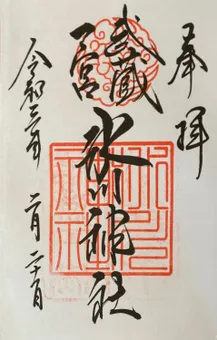 奉拝
武蔵
一宮
氷川神社
令和三年二月二十日